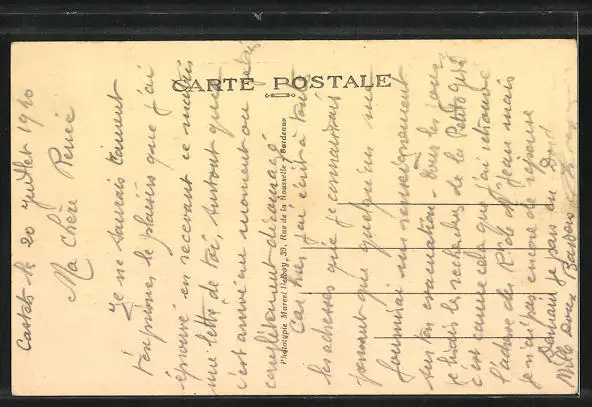 CARTE POSTALE
Phototypie Marcel Delboy, 39, Rue de la Rousselle - Bordeaux
Castets le 20 Juillet 1940
Ma Chère Renée
Je ne saurais comment
t'exprimer le plaisir que j'ai
éprouvé en recevant ce matin
une lettre de toi, surtout que
c'est arrivé au moment où
complètement découragé
Car j'ai écrit à
les adresses que je connaissais
pensant que quelqu'un me
fournirai un renseignement
sur ton évacuation. Tous les jours
je lisais les recherches de la Petite Gironde
c'est comme cela que j'ai retrouvé
l'adresse des de St Jean mais
je n'ai pas encore de réponse
Demain je pars en
Mille doux Baisers